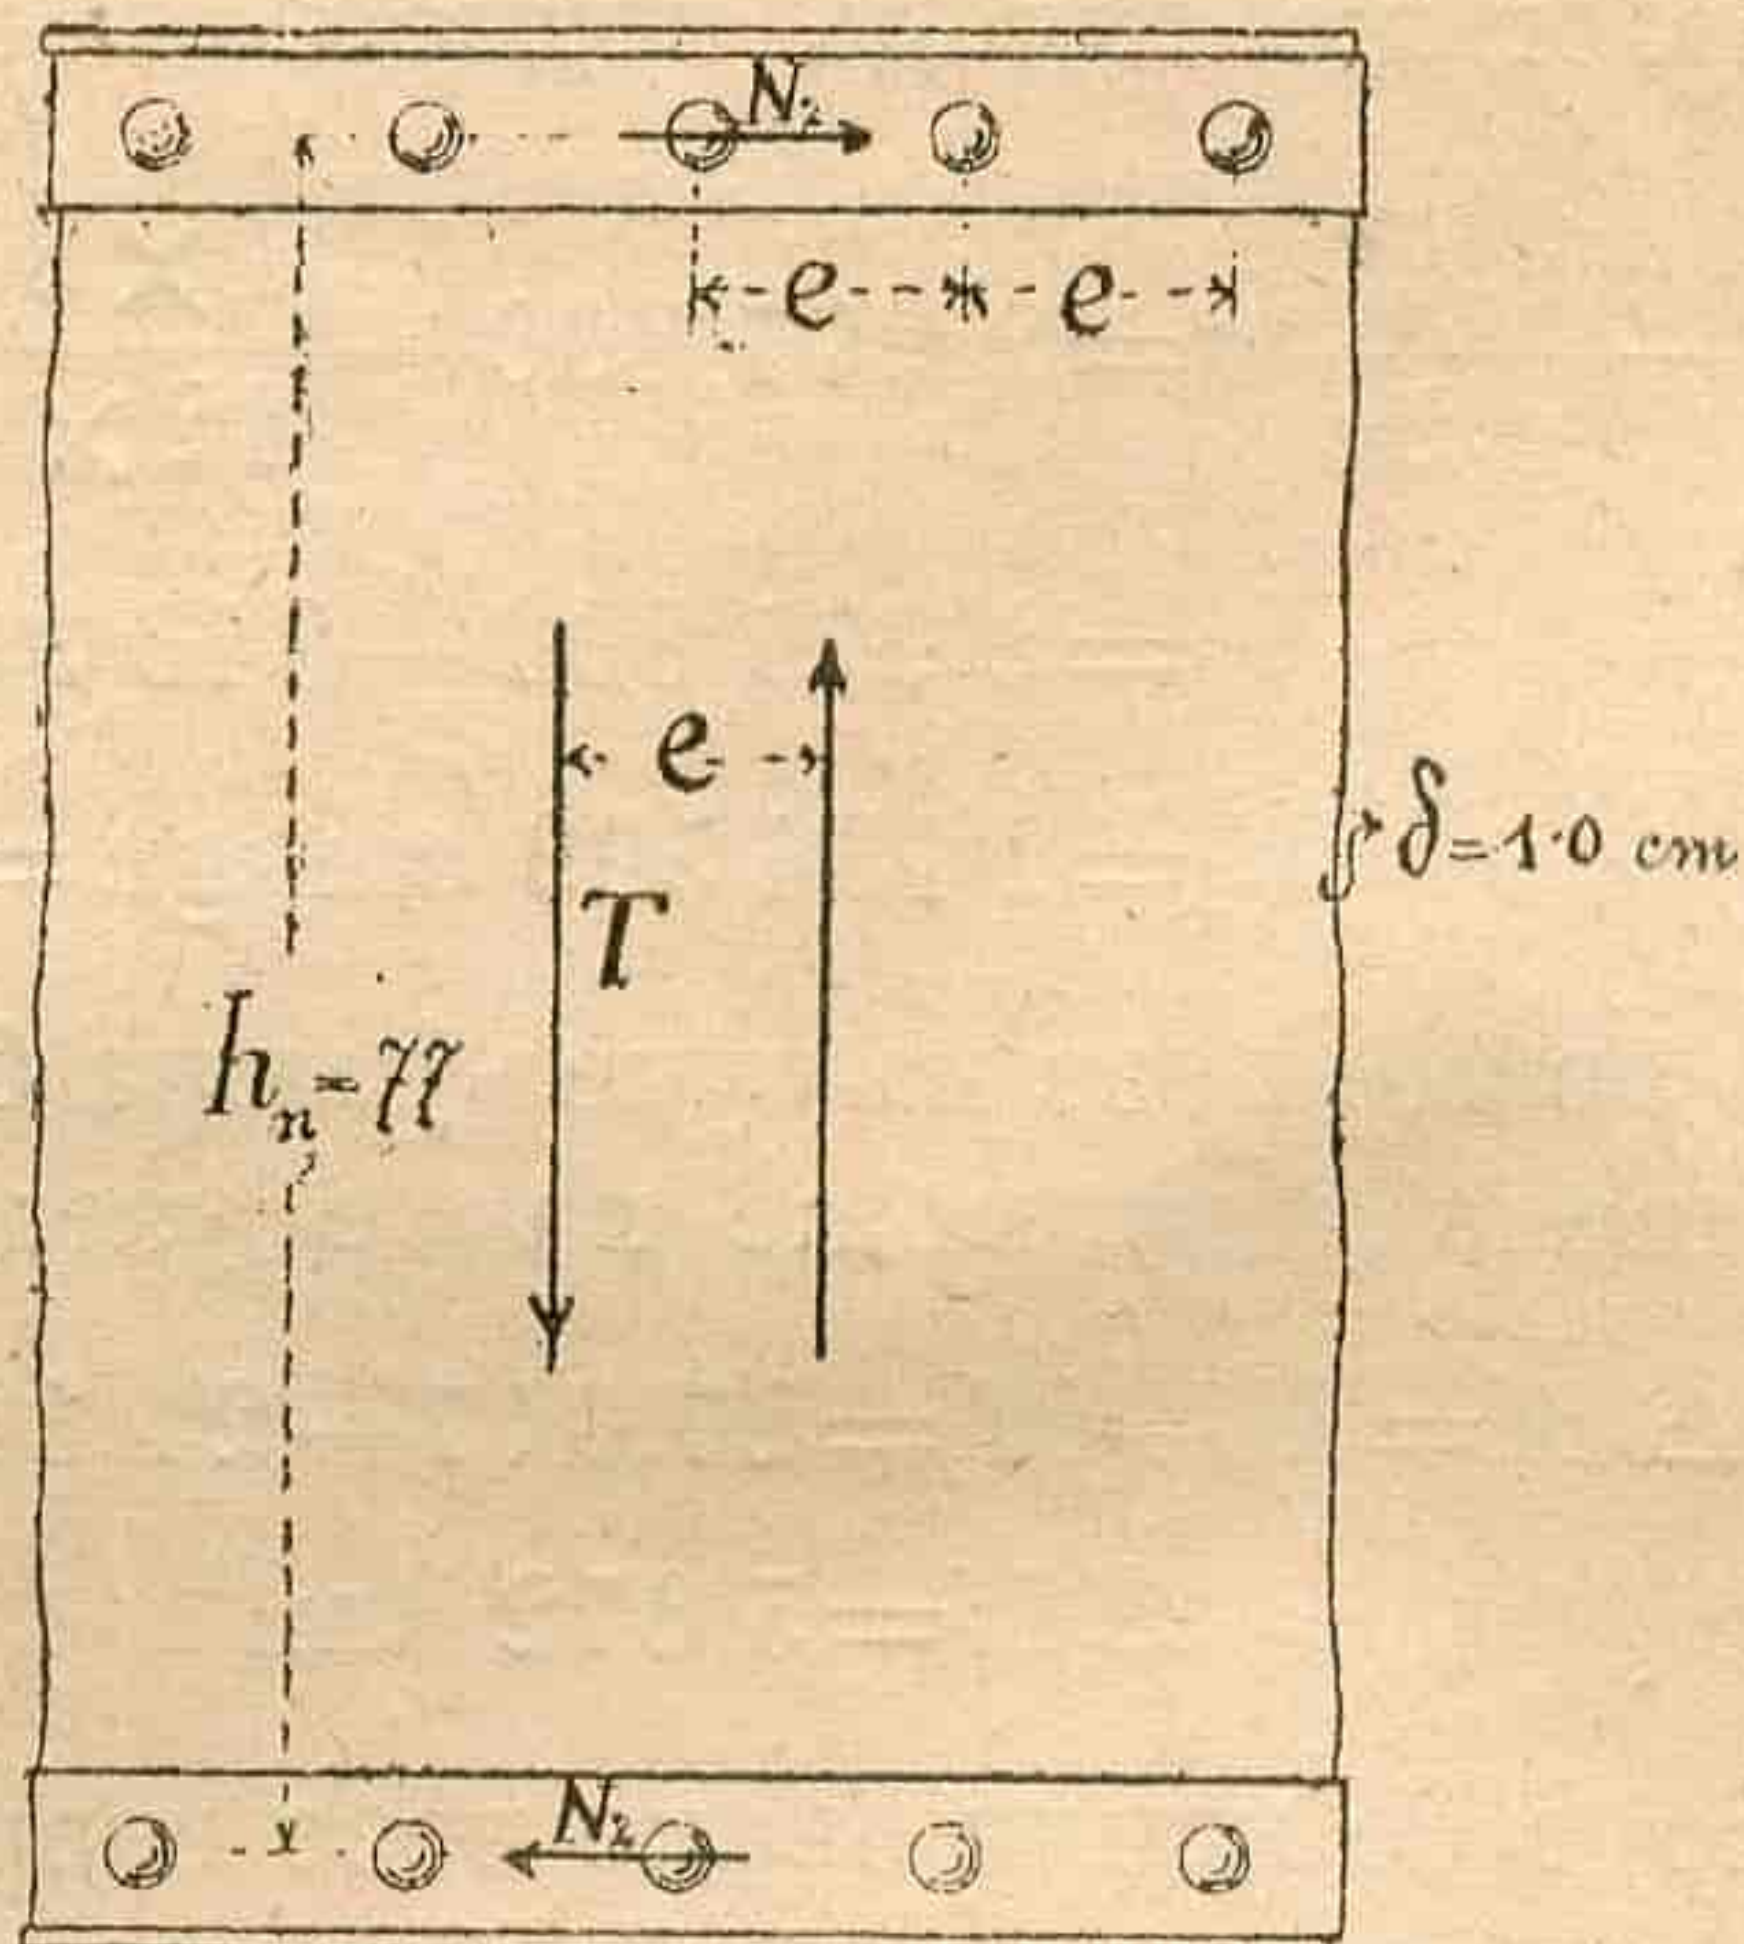 N₂
e e
e
T
δ=1·0 cm
hₙ=77
N₂